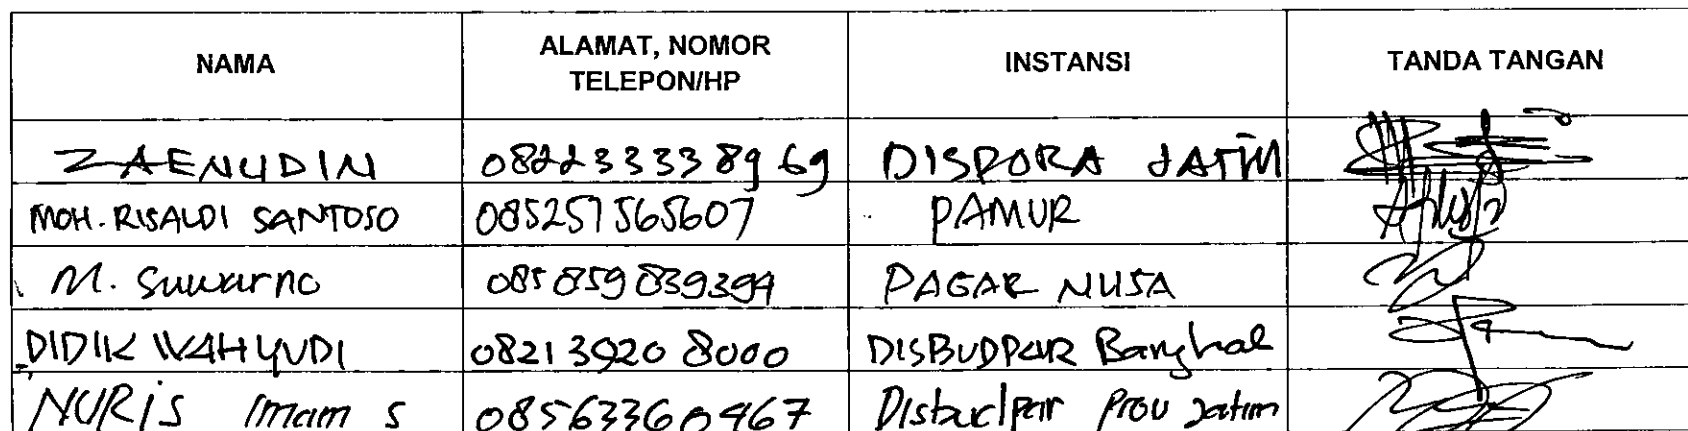 NAMA ALAMAT, NOMOR TELEPON/HP INSTANSI TANDA TANGAN
ZAENUDIN 082233338969 DISPORA JATIM
MOH. RISALDI SANTOSO 085257565607 PAMUR
M. Suwarno 085859839394 PAGAR NUSA
DIDIK WAHYUDI 082139208000 DISBUDPAR Bangkal
NURIS Imam S 08563360467 Disbudpar Prov Jatim